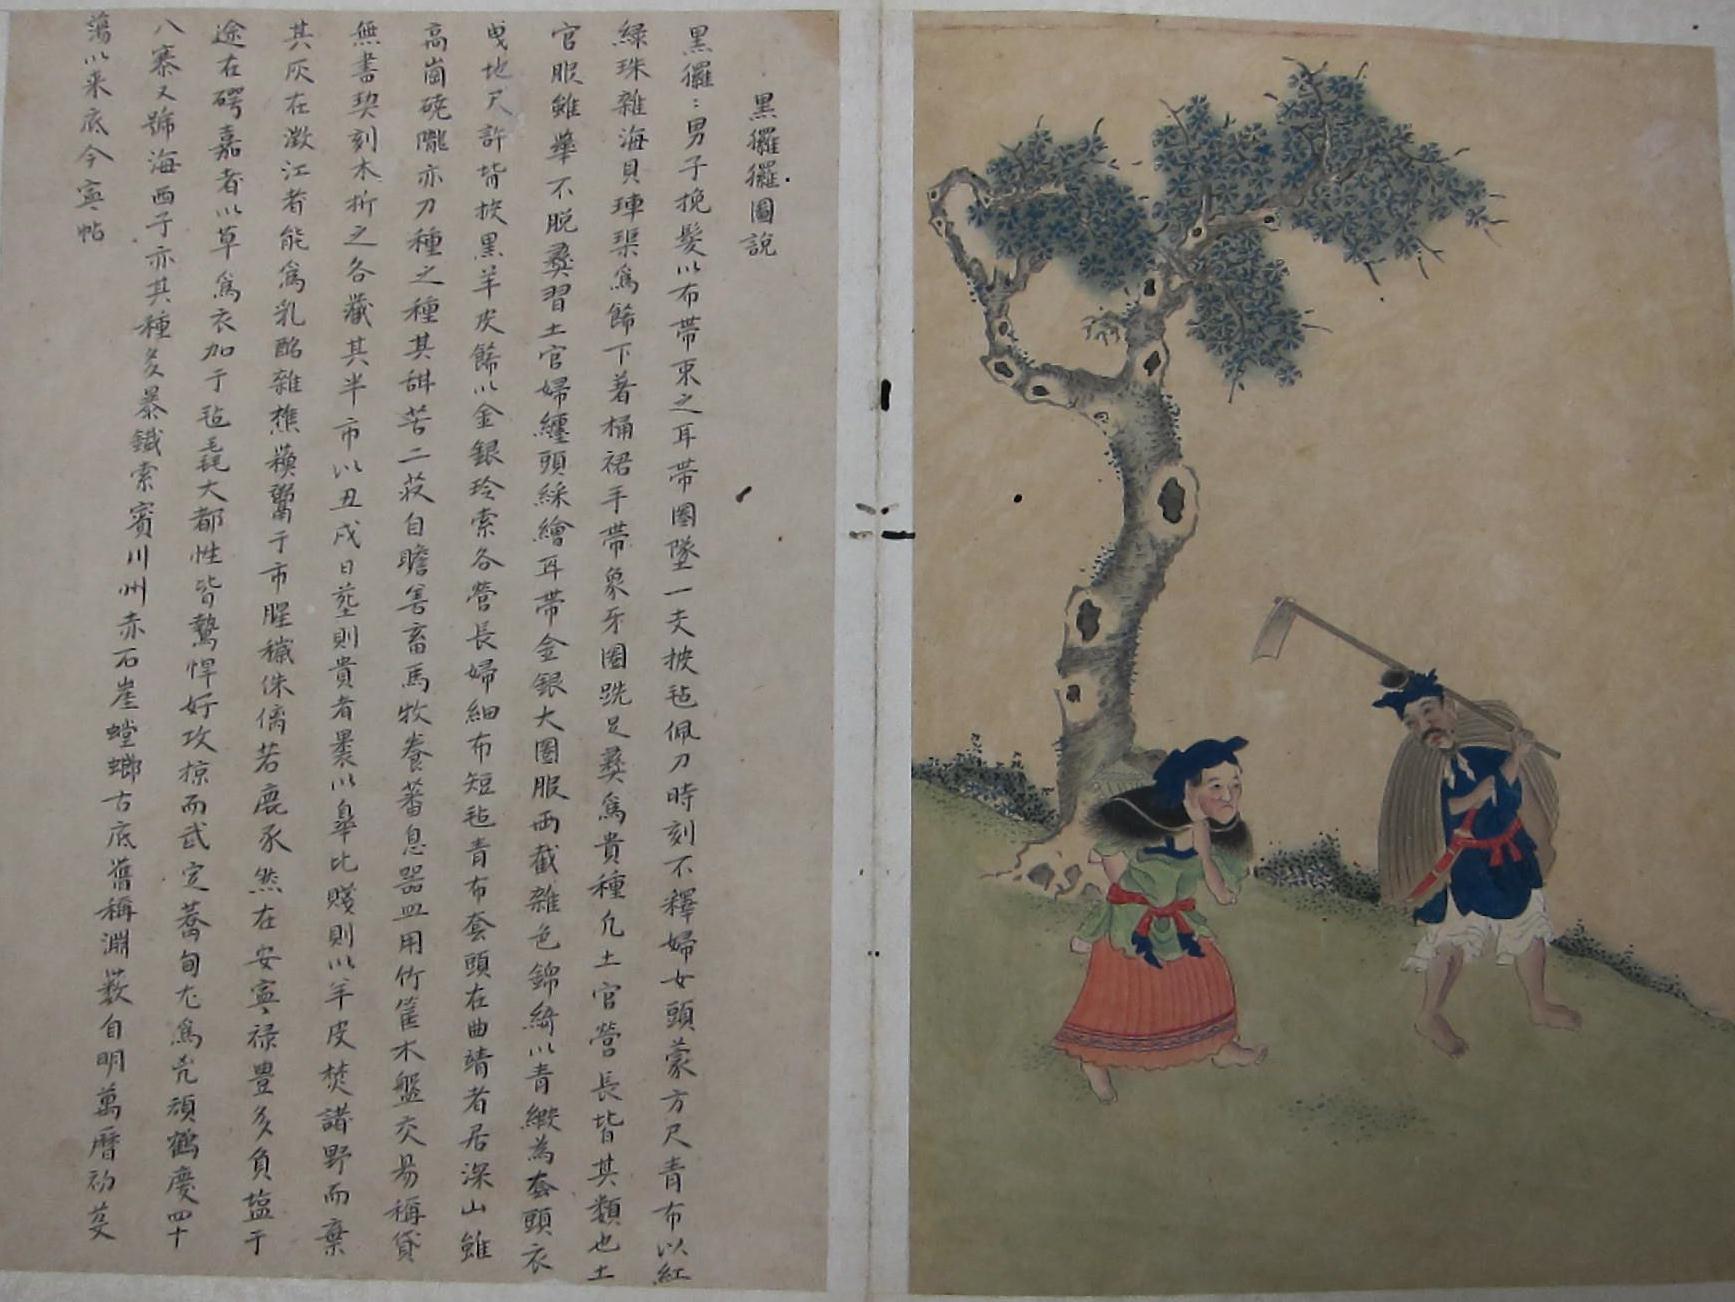 黑玀玀圖說
黑玀：男子挽髮以布帶束之耳帶圈墜一夫披毡佩刀時刻不釋婦女頭蒙方尺青布以紅
綠珠雜海貝硨磲為飾下著桶裙手帶象牙圈跣足彝為貴種凡土官營長皆其類也土
官服雖華不脫彝習土官婦纏頭綵繒耳帶金銀大圈服兩截雜色錦綺以青緞為套頭衣
曳地尺許背披黑羊皮飾以金銀玲索各營長婦細布短毡青布套頭在曲靖者居深山雖
高崗磽隴亦刀種之種其甜苦二荍自贍善畜馬牧養蕃息器皿用竹筐木盤交易稱貸
無書契刻木折之各藏其半市以丑戌日塟則貴者裹以皐比賤則以羊皮焚諸野而棄
其灰在澂江者能為乳酪雜樵蘋鬻于市腥穢侏儷若鹿豕然在安寧祿豊多負塩于
途在碍嘉者以草為衣加于毡毳大都性皆鷙悍好攻掠而武定蕎甸尤為兇頑鶴慶四十
八寨又號海西子亦其種多暴鐵索賓川州赤石崖螳螂古底舊稱淵藪自明萬曆初芟
蕩以来底今寧帖